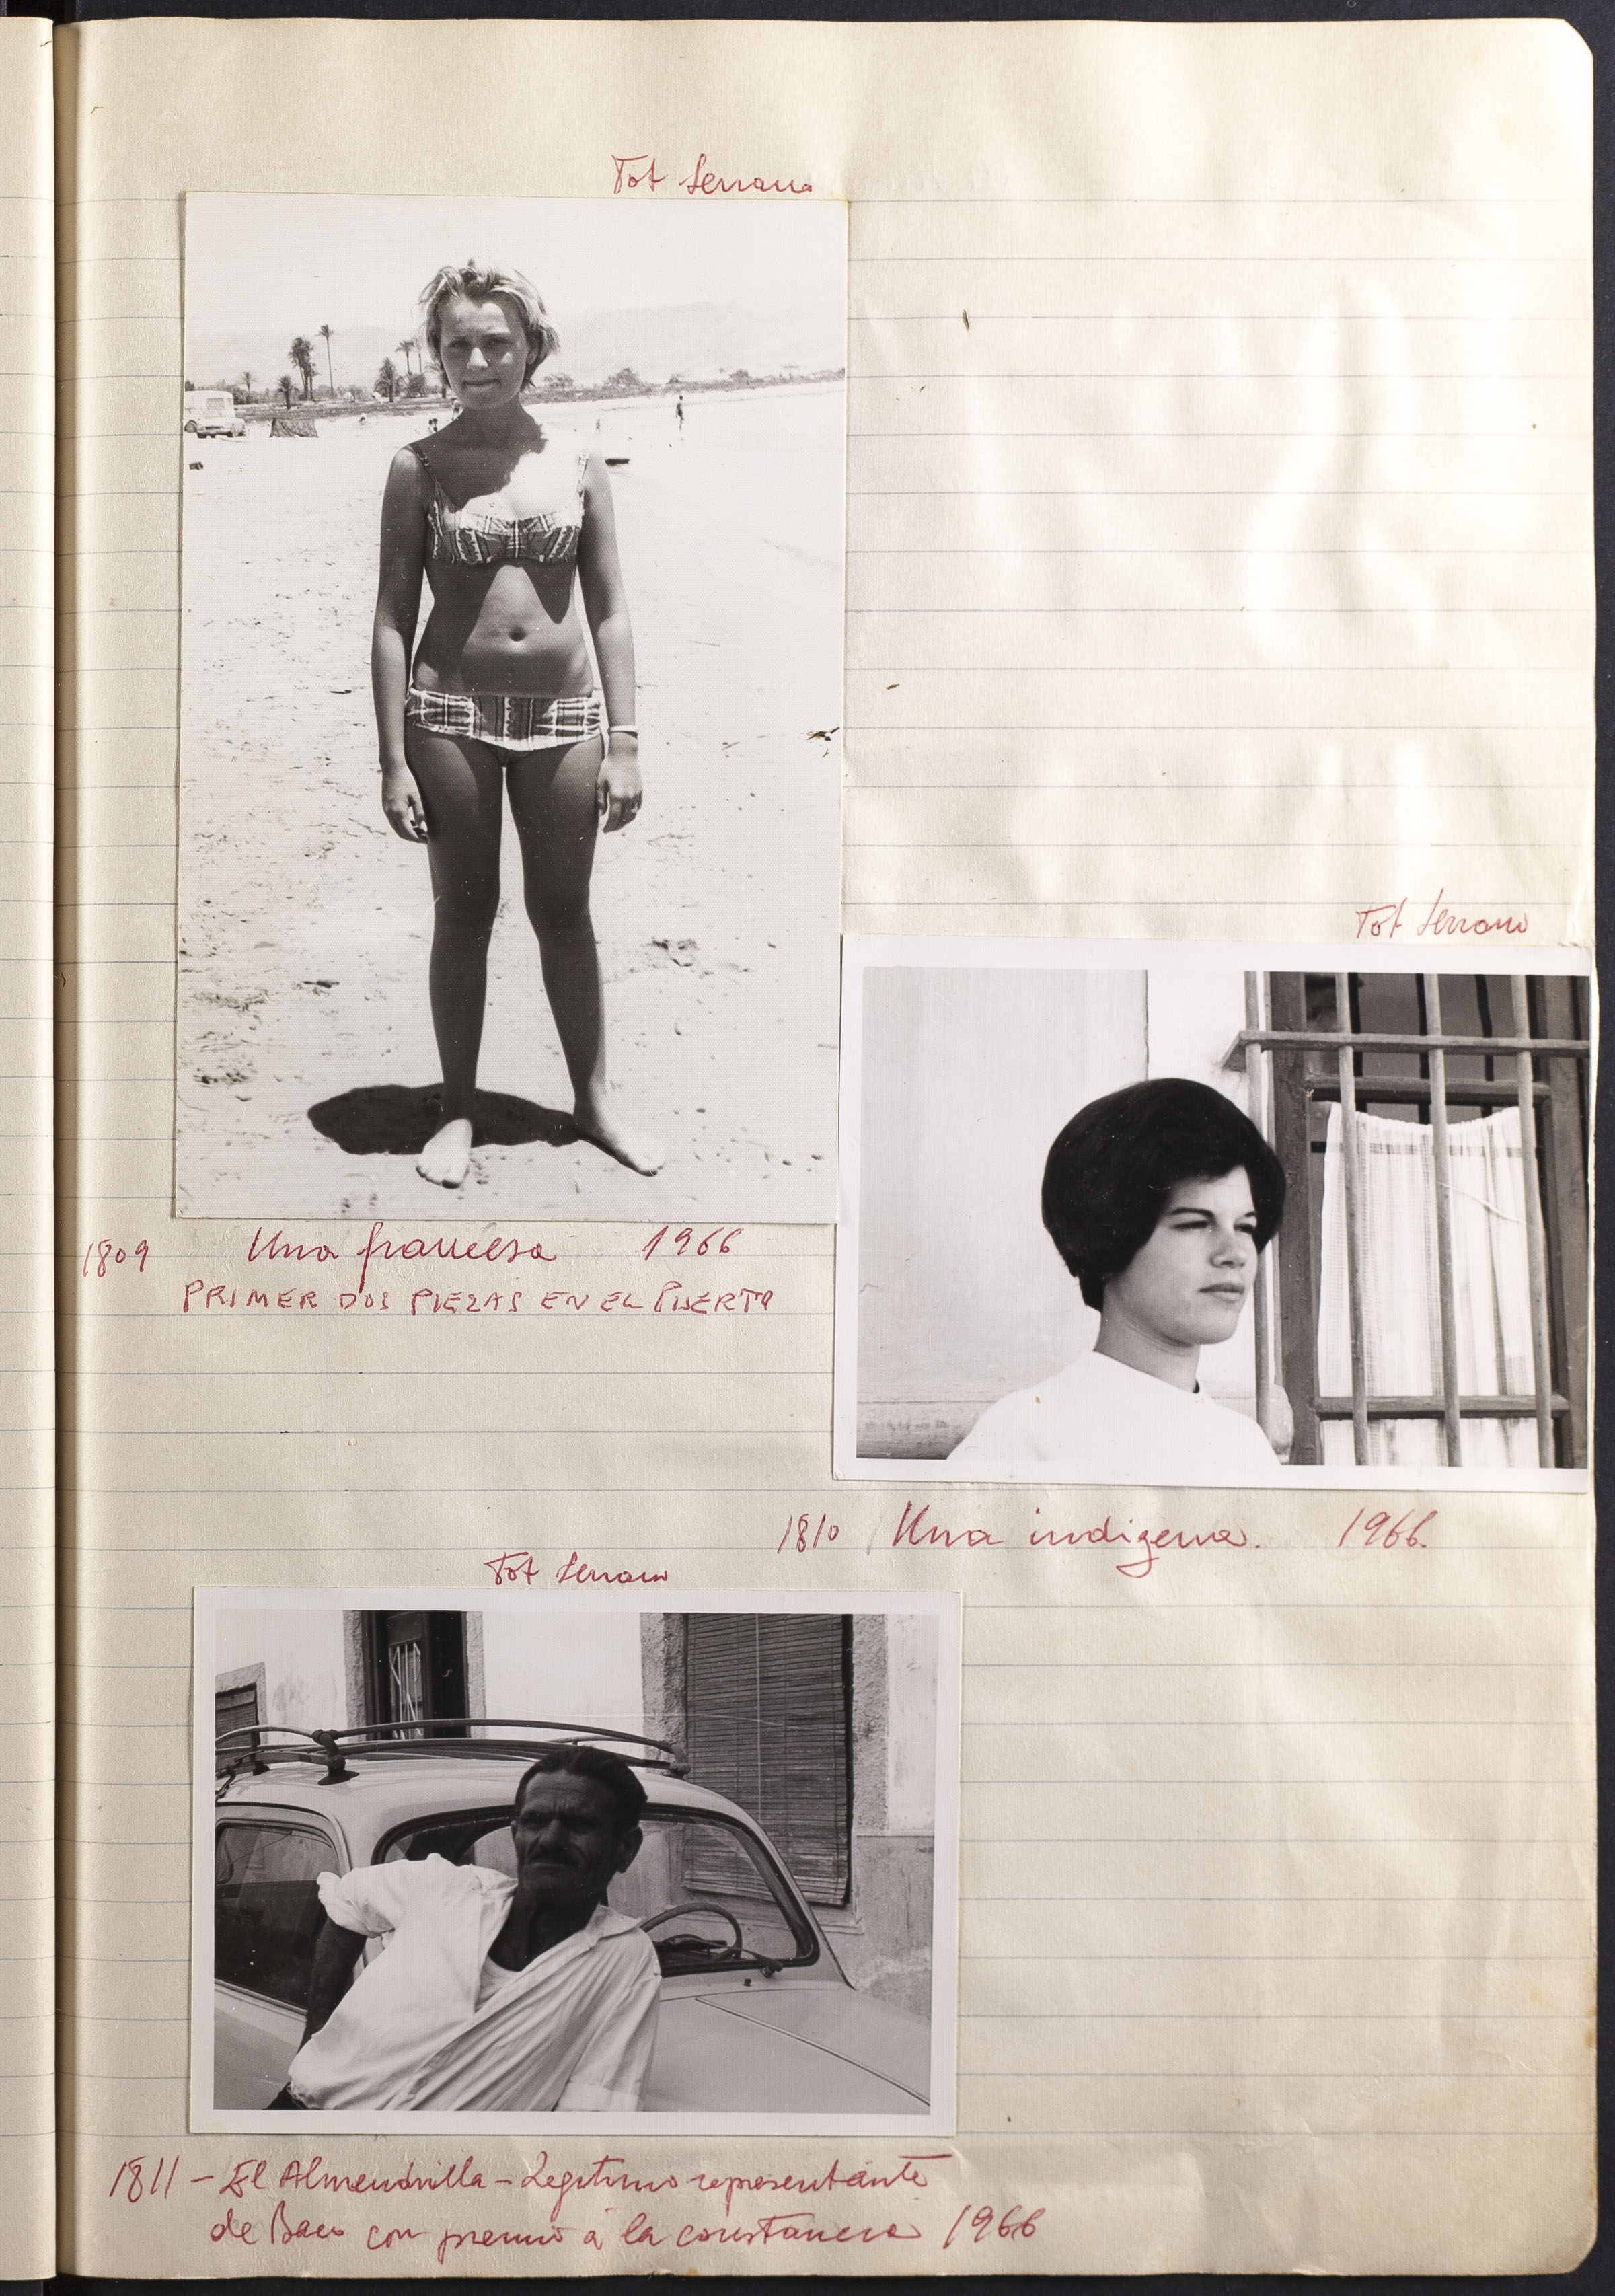 Fot Serrano
1809 Una francesa 1966
PRIMER DOS PIEZAS EN EL PUERTO
Fot Serrano
1810 Una indigena. 1966.
Fot Serrano
1811 - El Almendrilla - Legitimo representante
de Baco con premio a la constancia 1966